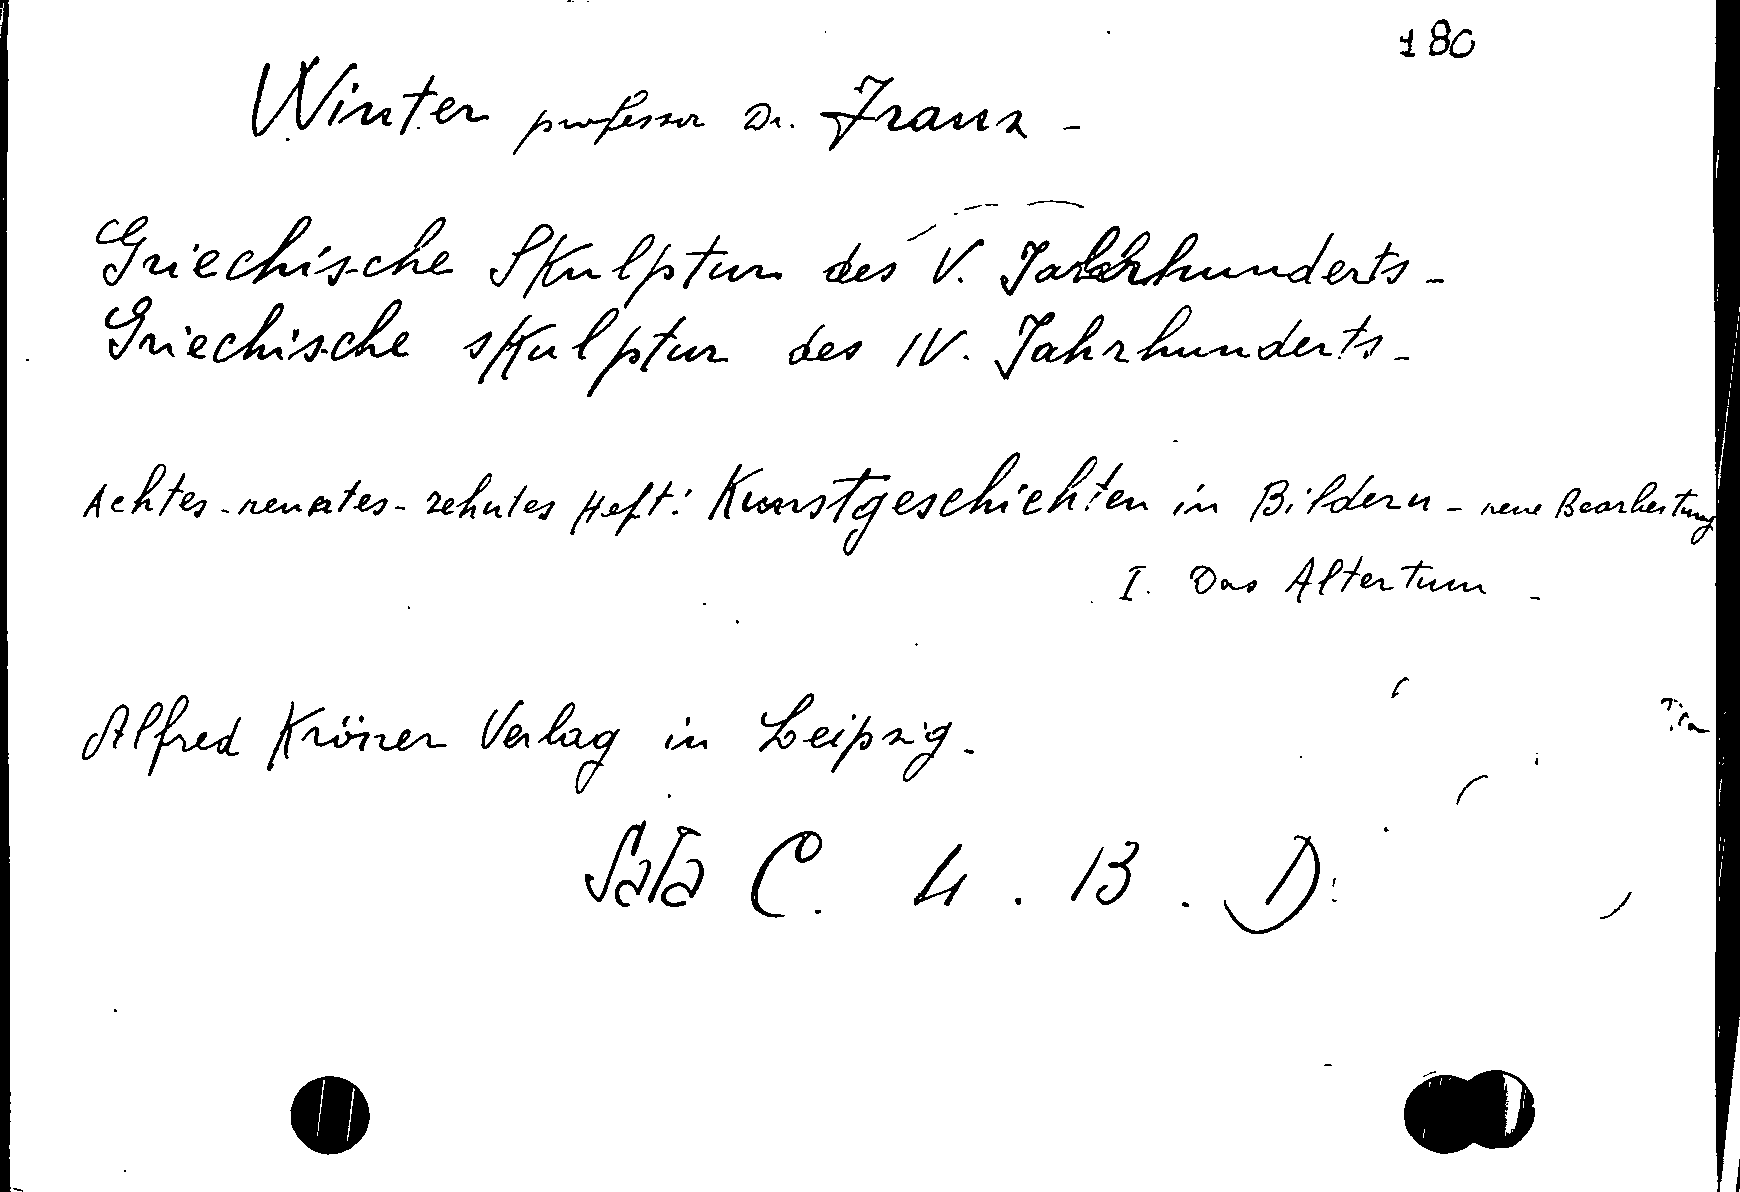 180
Winter professor Dr. Franz -
Griechische Skulptur des V. Jahrhunderts -
Griechische skulptur des IV. Jahrhunderts -
Achtes - neuntes - zehntes Heft: Kunstgeschichten in Bildern - neue Bearbeitung
I. Das Altertum -
Alfred Kröner Verlag in Leipzig -
Sala C. 4. B. D.